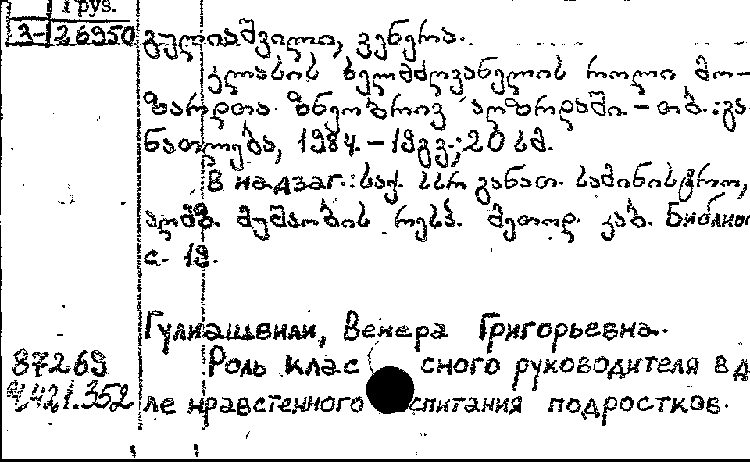 Груз.
3-26950 გულიაშვილი, ვენერა.
კლასის ხელმძღვანელის როლი მო-
ზარდთა ზნეობრივ აღზრდაში. – თბ.: გა
ნათლება, 1984. – 19გვ.; 20 სმ.
В надзаг.: საქ. სსრ განათ. სამინისტრო,
აღმზ. მუშაობის რესპ. მეთოდ. კაბ. Библиог
с. 19.
Гулиашвили, Венера Григорьевна.
87269 Роль клас сного руководителя в д
4.421.352 ле нравстенного спитания подростков.